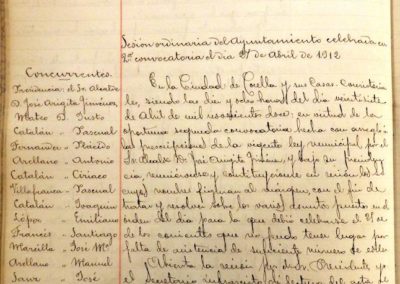 Sesión ordinaria del Ayuntamiento celebrada en
2ª convocatoria el dia 27 de Abril de 1912
Concurrentes
Presidencia: el Sr. Alcalde
D. José Arigita Jiménez
Mateo D. Justo
Catalán " Pascual
Fernandez " Plácido
Arellano " Antonio
Catalán " Ciriaco
Villafranca " Pascual
Catalán " Joaquin
López " Emiliano
Francés " Santiago
Marcilla " José Mª
Arellano " Manuel
Sanz " José
En la Ciudad de Corella y sus Casas Consistoria
les, siendo las diez y ocho horas del dia veintisiete
de Abril de mil novecientos doce, en virtud de la
oportuna segunda convocatoria hecha con arreglo
a las prescripciones de la vigente ley municipal por el
Sr. Alcalde D. José Arigita Jiménez y bajo su presiden
cia, reuniéronse y constituyéronse en sesión los
cuyos nombres figuran al márgen, con el fin de
tratar y resolver sobre los varios asuntos puestos en
órden del dia para la que debió celebrarse el 25
de los corrientes que no pudo tener lugar por
falta de asistencia de suficiente número de
Abierta la sesión por dicho Sr. Presidente y
el Secretario infrascrito dí lectura del acta